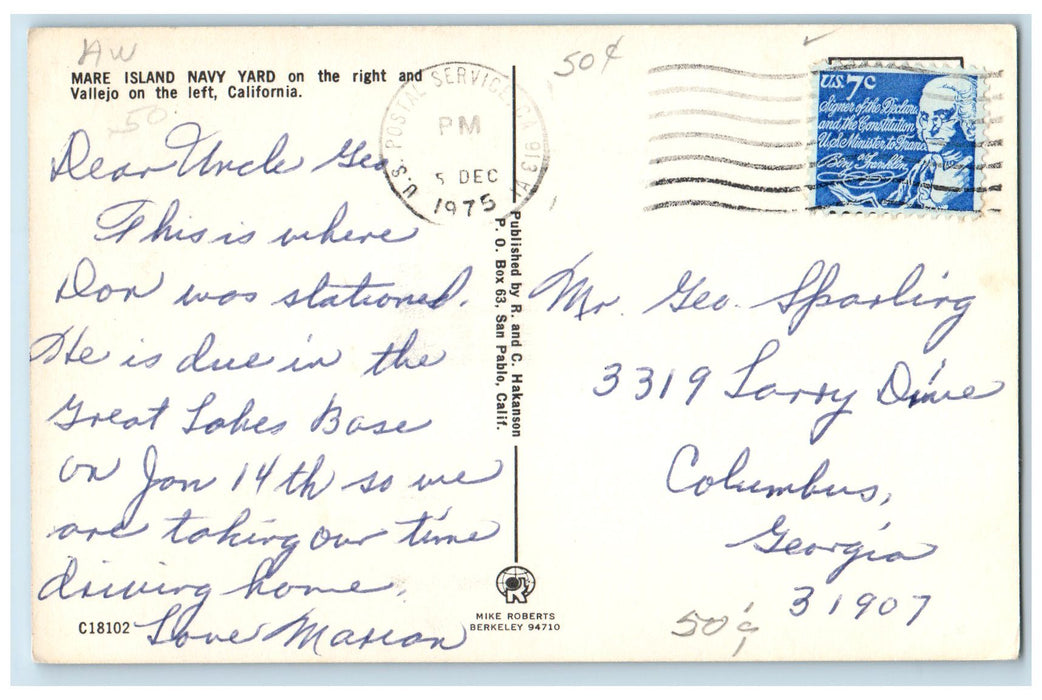 AW
MARE ISLAND NAVY YARD on the right and
Vallejo on the left, California.
50
Dear Uncle Geo
This is where
Don was stationed.
He is due in the
Great Lakes Base
on Jan 14th so we
are taking our time
driving home.
Love Marion
C18102
U.S. POSTAL SERVICE, CA 913
PM
5 DEC
1975
Published by R. and C. Hakanson
P. O. Box 63, San Pablo, Calif.
MIKE ROBERTS
BERKELEY 94710
50¢
U.S. 7c
Signer of the Declara
and the Constitution
U.S. Minister to France
Benj Franklin
Mr. Geo. Sparling
3319 Larry Drive
Columbus,
Georgia
31907
50¢